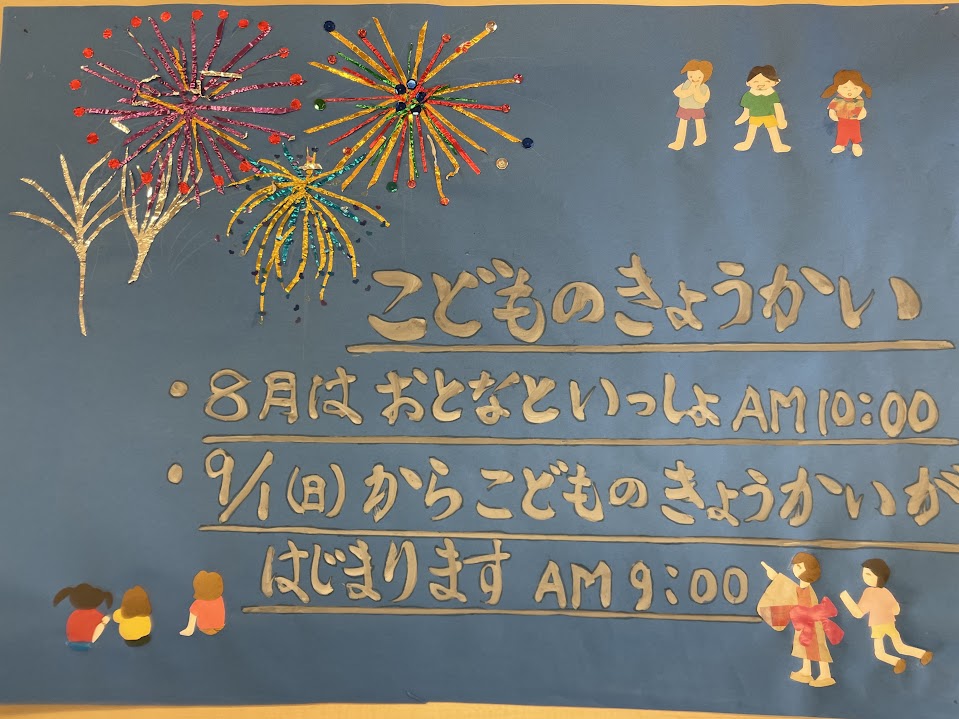 こどものきょうかい
・8月は おとなといっしょ AM10:00
・9/1(日)から こどものきょうかいが
はじまります AM 9:00